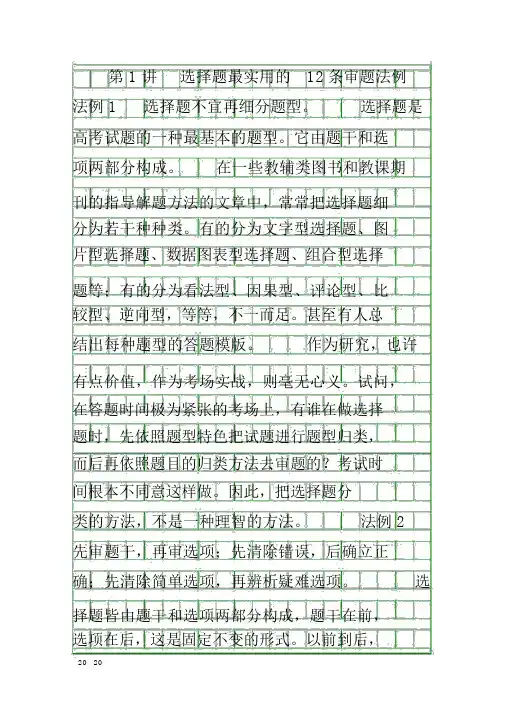 第1讲 选择题最实用的 12条审题法例
法例1 选择题不宜再细分题型。 选择题是
高考试题的一种最基本的题型。它由题干和选
项两部分构成。 在一些教辅类图书和教课期
刊的指导解题方法的文章中，常常把选择题细
分为若干种种类。有的分为文字型选择题、图
片型选择题、数据图表型选择题、组合型选择
题等；有的分为看法型、因果型、评论型、比
较型、逆向型，等等，不一而足。甚至有人总
结出每种题型的答题模版。 作为研究，也许
有点价值，作为考场实战，则毫无心义。试问，
在答题时间极为紧张的考场上，有谁在做选择
题时，先依照题型特色把试题进行题型归类，
而后再依照题目的归类方法去审题的？考试时
间根本不同意这样做。因此，把选择题分
类的方法，不是一种理智的方法。 法例2
先审题干，再审选项；先清除错误，后确立正
确；先清除简单选项，再辨析疑难选项。 选
择题皆由题干和选项两部分构成，题干在前，
选项在后，这是固定不变的形式。以前到后，
20 20